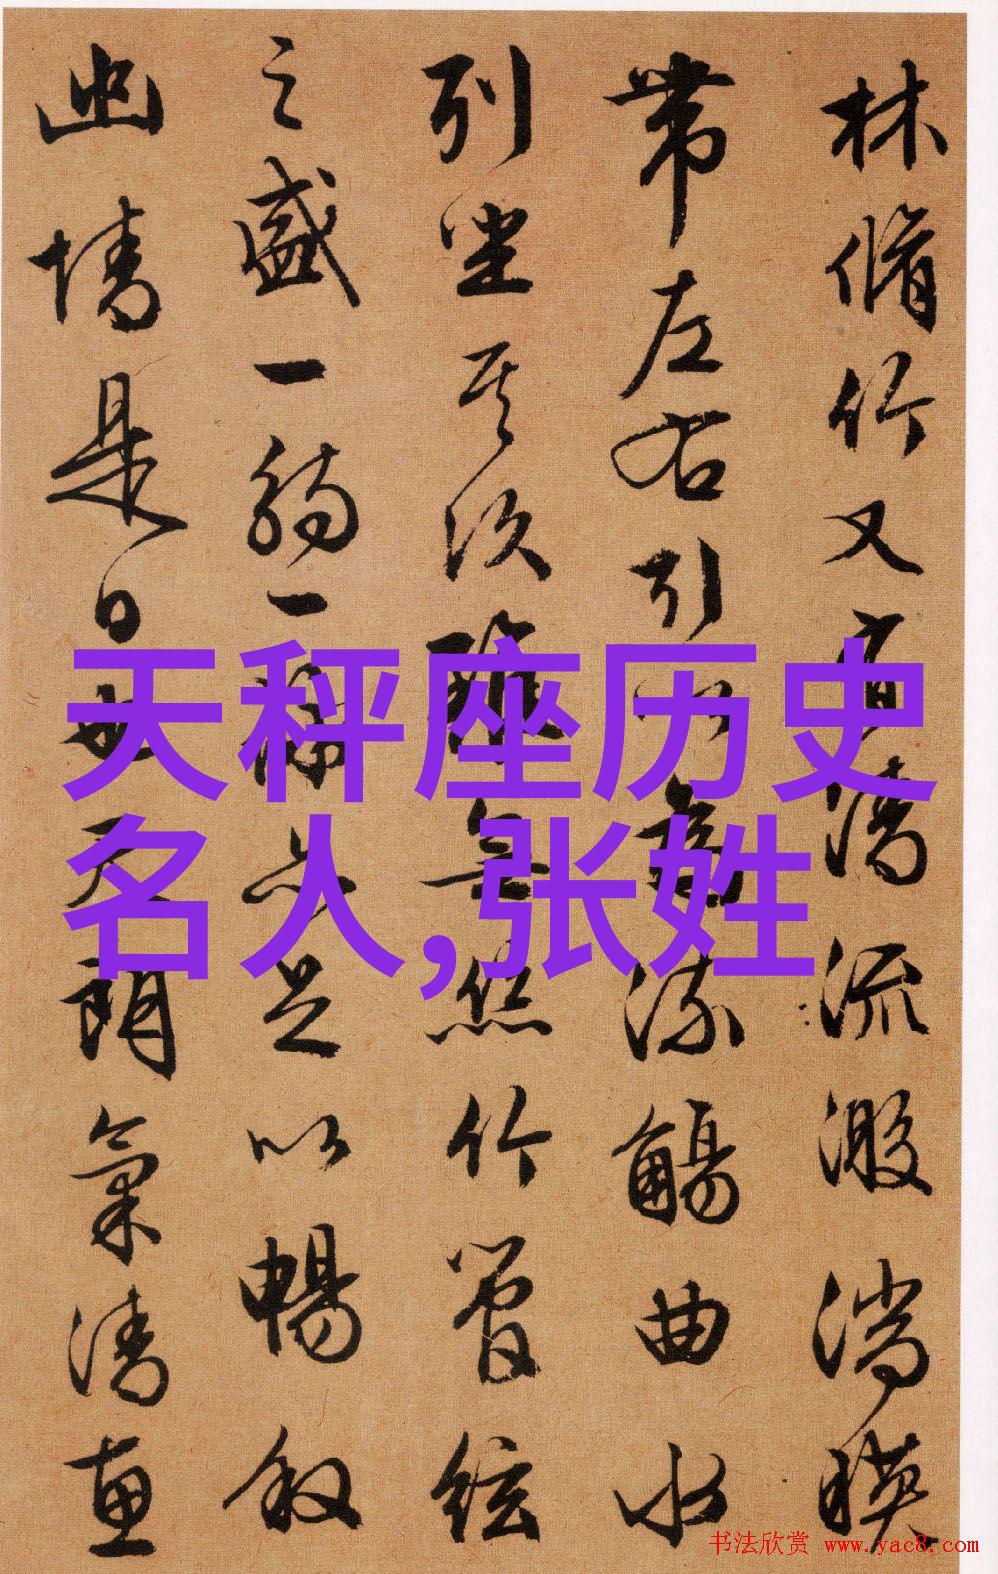 林脩竹又有清流激湍暎
帶左右引以為流觴曲水
列坐其次雖無絲竹管絃
之盛一觴一詠亦足以暢叙
幽情是日也天朗氣清惠
天秤座历史
名人,张姓
书法欣赏 www.yac8.com